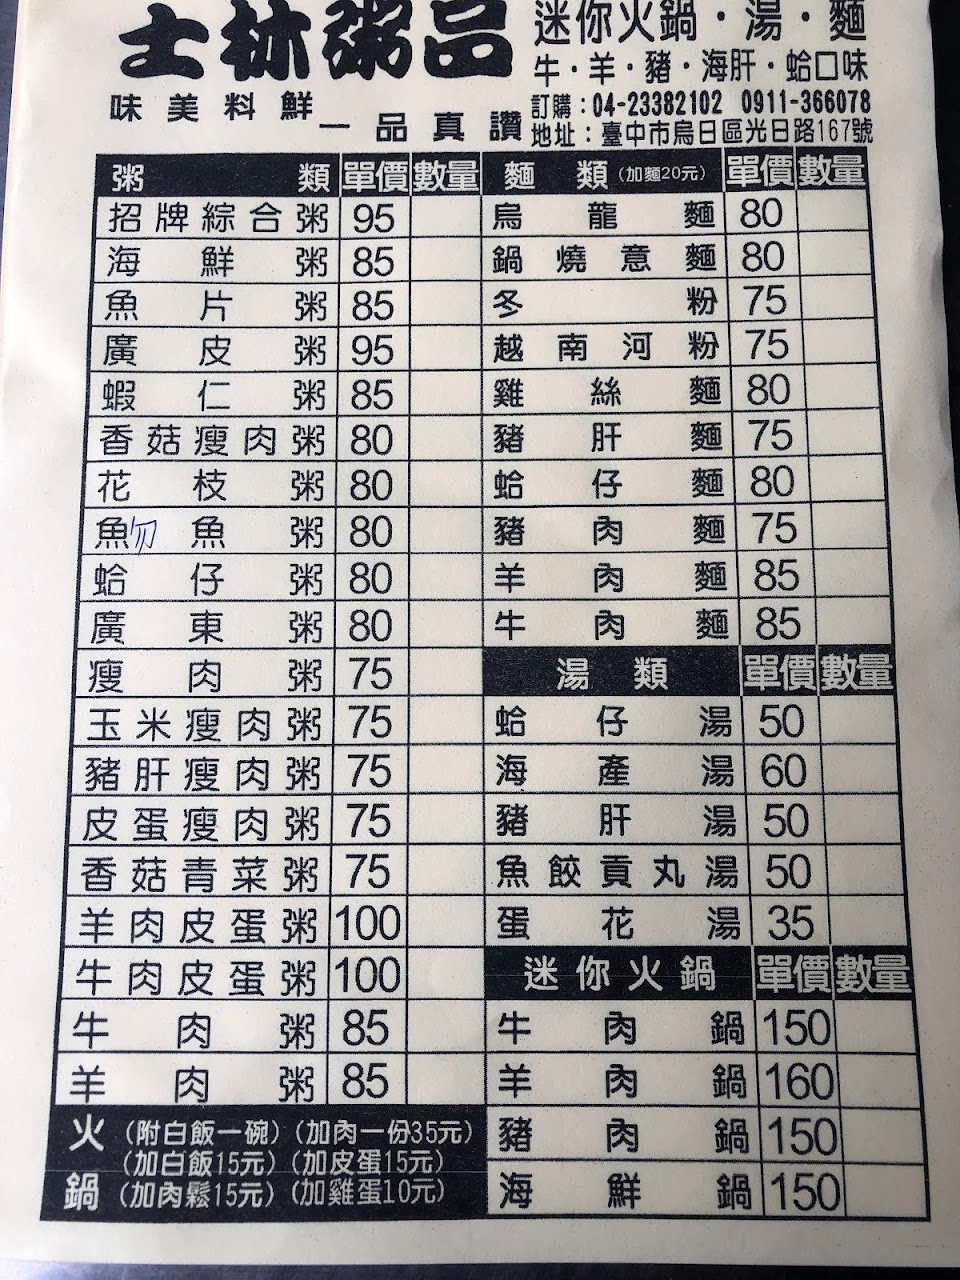 士林粥品
味美料鮮
一品真讚
迷你火鍋·湯·麵
牛·羊·豬·海肝·蛤口味
訂購:04-23382102 0911-366078
地址:臺中市烏日區光日路167號
粥類 單價 數量
招牌綜合粥 95
海鮮粥 85
魚片粥 85
廣皮粥 95
蝦仁粥 85
香菇瘦肉粥 80
花枝粥 80
魚勿魚粥 80
蛤仔粥 80
廣東粥 80
瘦肉粥 75
玉米瘦肉粥 75
豬肝瘦肉粥 75
皮蛋瘦肉粥 75
香菇青菜粥 75
羊肉皮蛋粥 100
牛肉皮蛋粥 100
牛肉粥 85
羊肉粥 85
火鍋
(附白飯一碗)(加肉一份35元)
(加白飯15元)(加皮蛋15元)
(加肉鬆15元)(加雞蛋10元)
麵類(加麵20元) 單價 數量
烏龍麵 80
鍋燒意麵 80
冬粉 75
越南河粉 75
雞絲麵 80
豬肝麵 75
蛤仔麵 80
豬肉麵 75
羊肉麵 85
牛肉麵 85
湯類 單價 數量
蛤仔湯 50
海產湯 60
豬肝湯 50
魚餃貢丸湯 50
蛋花湯 35
迷你火鍋 單價 數量
牛肉鍋 150
羊肉鍋 160
豬肉鍋 150
海鮮鍋 150